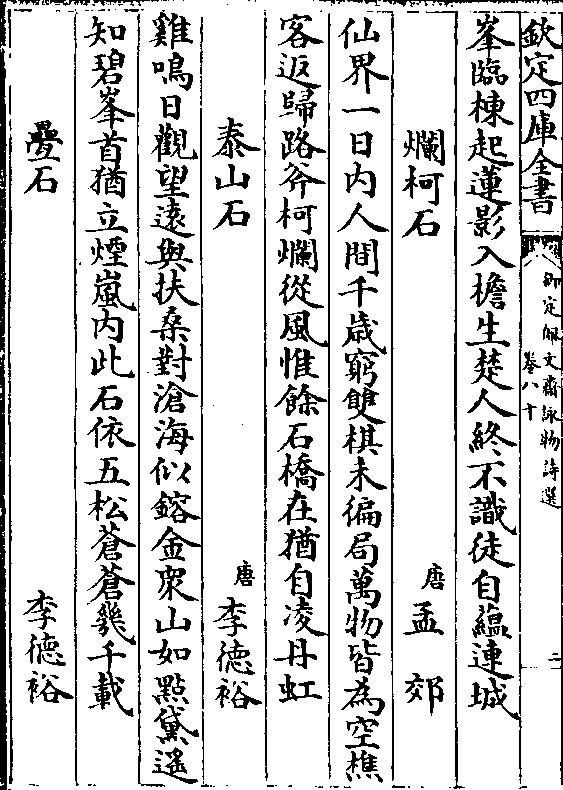 欽定四庫全書
御定佩文齋詠物詩選
卷八十
二
峯臨棟起蓮影入檐生楚人終不識徒自藴連城
爛柯石
唐
孟郊
仙界一日内人間千歳窮雙棋未徧局萬物皆為空樵
客返歸路斧柯爛從風惟餘石橋在猶自凌丹虹
泰山石
唐
李德裕
雞鳴日觀望遠與扶桑對滄海似鎔金衆山如㸃黛遥
知碧峯首猶立煙嵐内此石依五松蒼蒼幾千載
疊石
李德裕